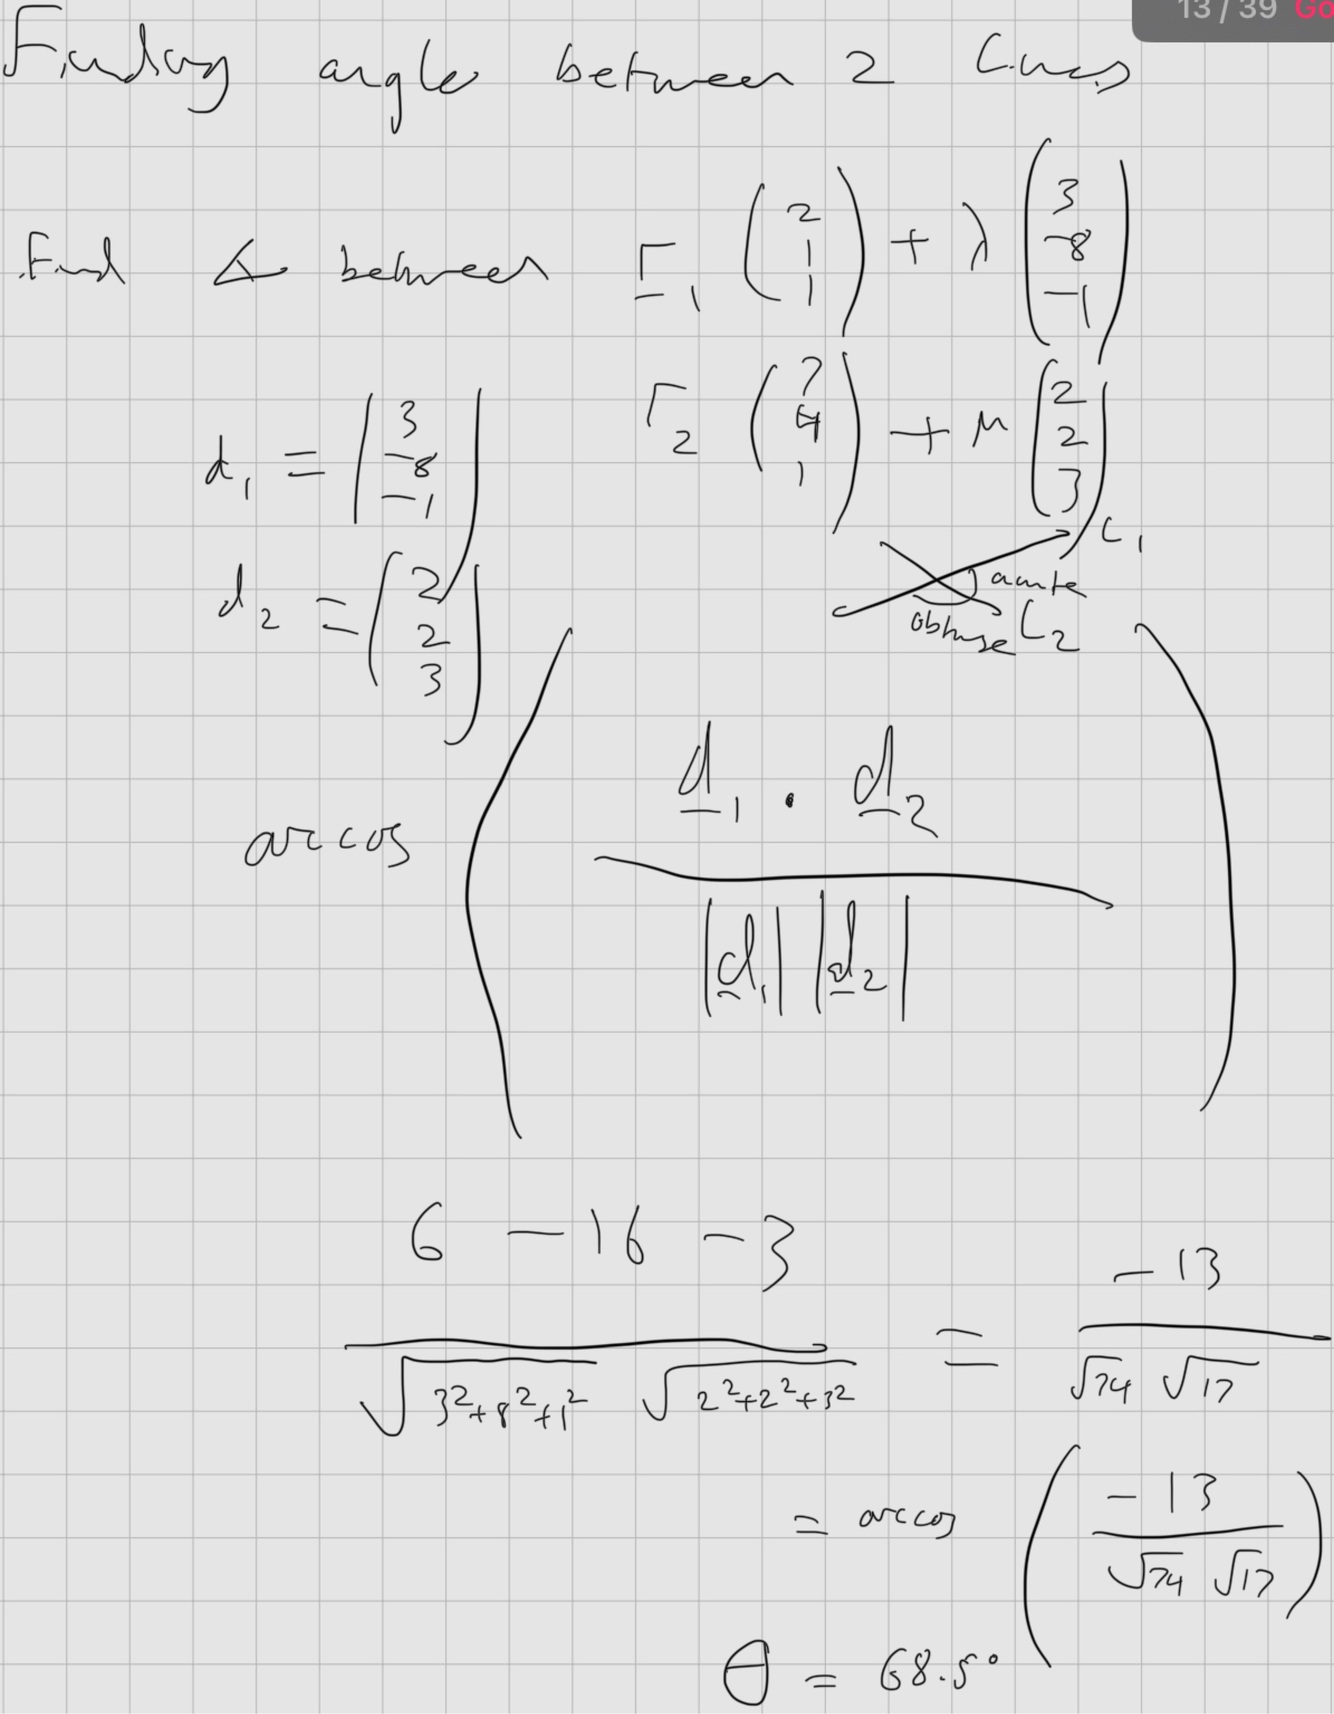 13 / 39 Go
Finding angle between 2 lines
Find ∡ between r₁ (2 1 1) + λ (3 -8 -1)
r₂ (7 4 1) + μ (2 2 3)
d₁ = (3 -8 -1)
d₂ = (2 2 3)
L₁
acute
obtuse L₂
arccos ( d₁ · d₂ / |d₁| |d₂| )
6 - 16 - 3 / √(3²+8²+1²) √(2²+2²+3²) = -13 / √74 √17
= arccos ( -13 / √74 √17 )
θ = 68.5°